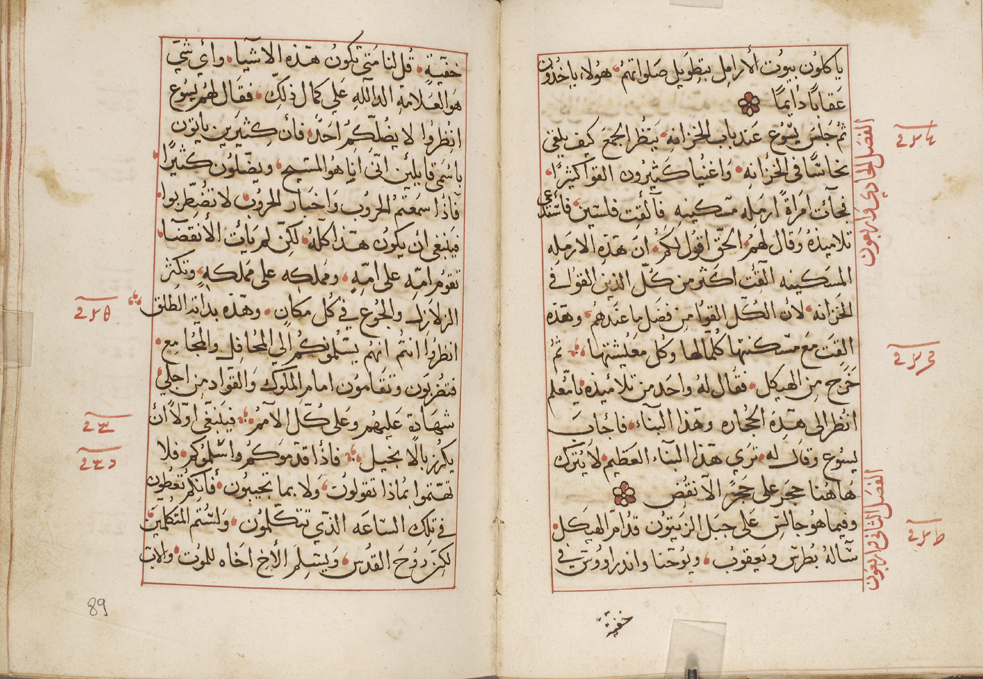 ياكلون بيوت الارامل بتطويل صلواتهم هولاء ياخذون
عقابا دايما
ثم جلس يسوع عند باب الخزانه ينظر الجمع كيف يلقي
نحاسا في الخزانه واغنيا كثيرون القوا كثيرا
فجات امراة ارمله مسكينه فالقت فلسين فاستدعي
تلاميذه وقال لهم الحق اقول لكم ان هذه الارمله
المسكينه القت اكثر من كل الذين القوا في
الخزانه لان الكل القوا من فضل ما عندهم وهذه
القت مع مسكنتها كلمالها وكل معيشتها ثم
خرج من الهيكل فقال له واحد من تلاميذه يامعلم
انظر الي هذه الحجاره وهذا البناء فاجاب
يسوع وقال له تري هذا البناء العظيم لا يترك
هاهنا حجر علي حجر الا نقض
وفيما هو جالس علي جبل الزيتون قدام الهيكل
ساله بطرس ويعقوب ويوحنا واندراووس في
خفية
الفصل الحادي واربعون
الفصل الثاني واربعون
خفية قل لنا متي تكون هذه الاشيا واي شي
هو العلامة الدالله علي كمال ذلك فقال لهم يسوع
انظروا لا يضلكم احد فان كثيرين ياتون
باسمي قايلين اني انا هو المسيح ويضلون كثيرا
فاذا سمعتم الحروب واخبار الحروب لا تضطربوا
فينبغي ان يكون هذا كله لكن لم يات الانقضا
تقوم امة علي امة ومملكه علي مملكه وتكثر
الزلازل والجوع في كل مكان وهذه بداية الطلق
انظروا انتم انهم يسلمونكم الي المحافل والمجامع
فتضربون وتقامون امام الملوك والقواد من اجلي
شهادة عليهم وعلي كل الامم فينبغي اولا ان
يكرز بالانجيل فاذا قدموكم واسلموكم فلا
تهتموا بماذا تقولون ولا بما تجيبون فانكم تعطون
في تلك الساعه الذي تتكلمون ولستم المتكلمين
لكن روح القدس ويسلم الاخ اخاه للموت والاب
89